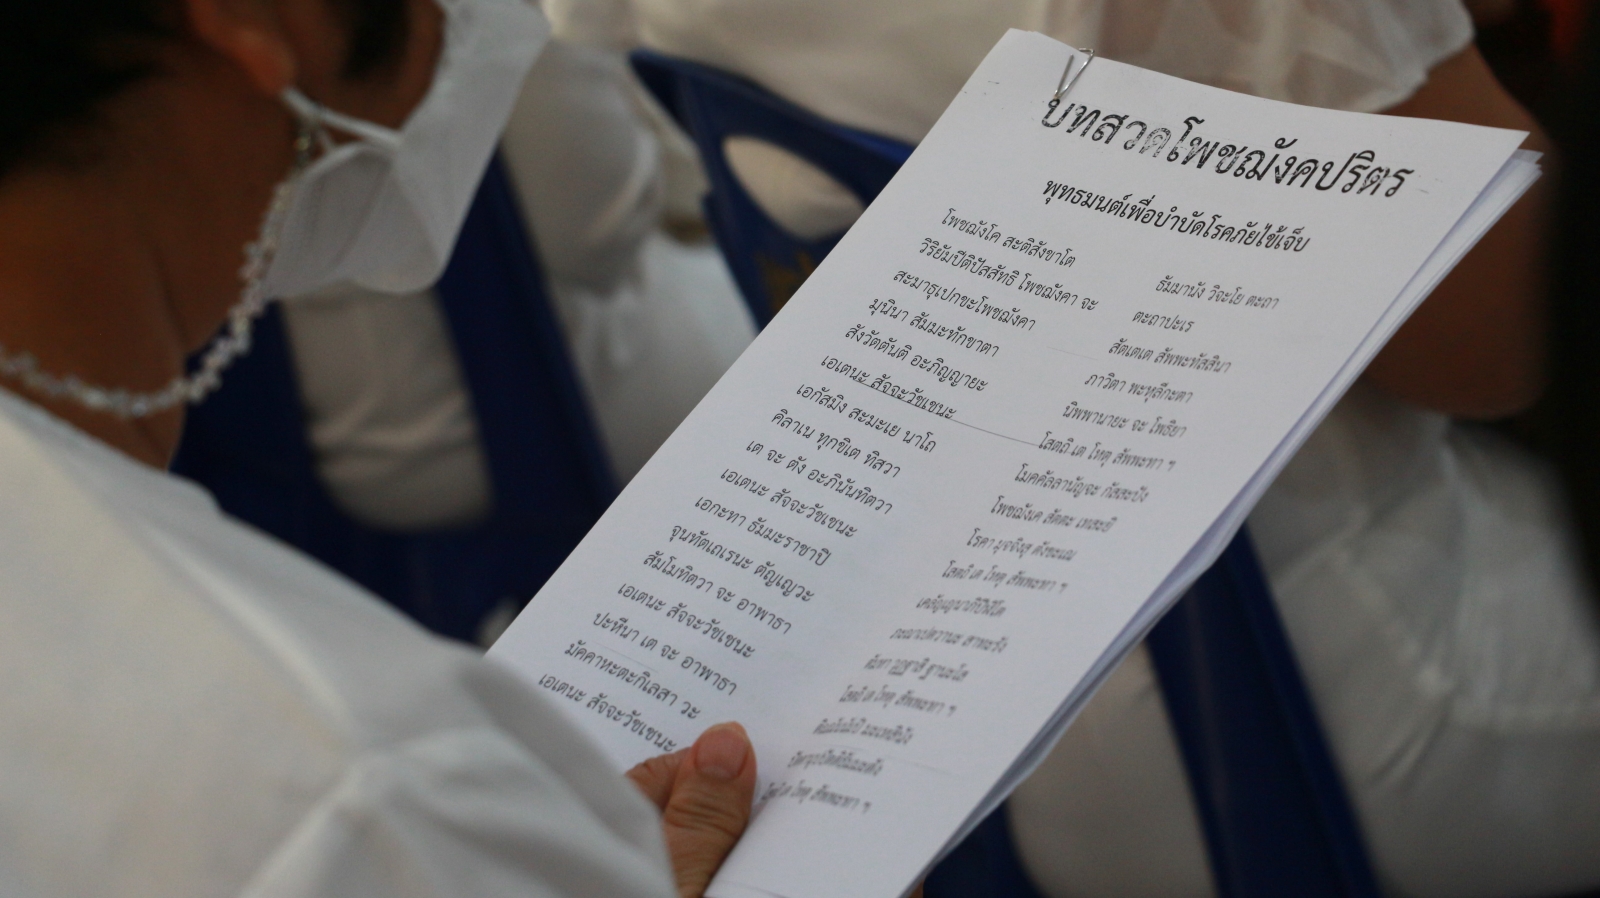 บทสวดโพชฌังคปริตร
พุทธมนต์เพื่อบำบัดโรคภัยไข้เจ็บ
โพชฌังโค สะติสังขาโต ธัมมานัง วิจะโย ตะถา
วิริยัมปีติปัสสัทธิ โพชฌังคา จะ ตะถาปะเร
สะมาธุเปกขะโพชฌังคา สัตเตเต สัพพะทัสสินา
มุนินา สัมมะทักขาตา ภาวิตา พะหุลีกะตา
สังวัตตันติ อะภิญญายะ นิพพานายะ จะ โพธิยา
เอเตนะ สัจจะวัชเชนะ โสตถิ เต โหตุ สัพพะทา ฯ
เอกัสมิง สะมะเย นาโถ โมคคัลลานัญจะ กัสสะปัง
คิลาเน ทุกขิเต ทิสวา โพชฌังเค สัตตะ เทสะยิ
เต จะ ตัง อะภินันทิตวา โรคา มุจจิงสุ ตังขะเณ
เอเตนะ สัจจะวัชเชนะ โสตถิ เต โหตุ สัพพะทา ฯ
เอกะทา ธัมมะราชาปิ
จุนทัตเถเรนะ ตัญเญวะ
สัมโมทิตวา จะ อาพาธา
เอเตนะ สัจจะวัชเชนะ โสตถิ เต โหตุ สัพพะทา ฯ
ปะหีนา เต จะ อาพาธา
มัคคาหะตะกิเลสา วะ
เอเตนะ สัจจะวัชเชนะ เต โหตุ สัพพะทา ฯ